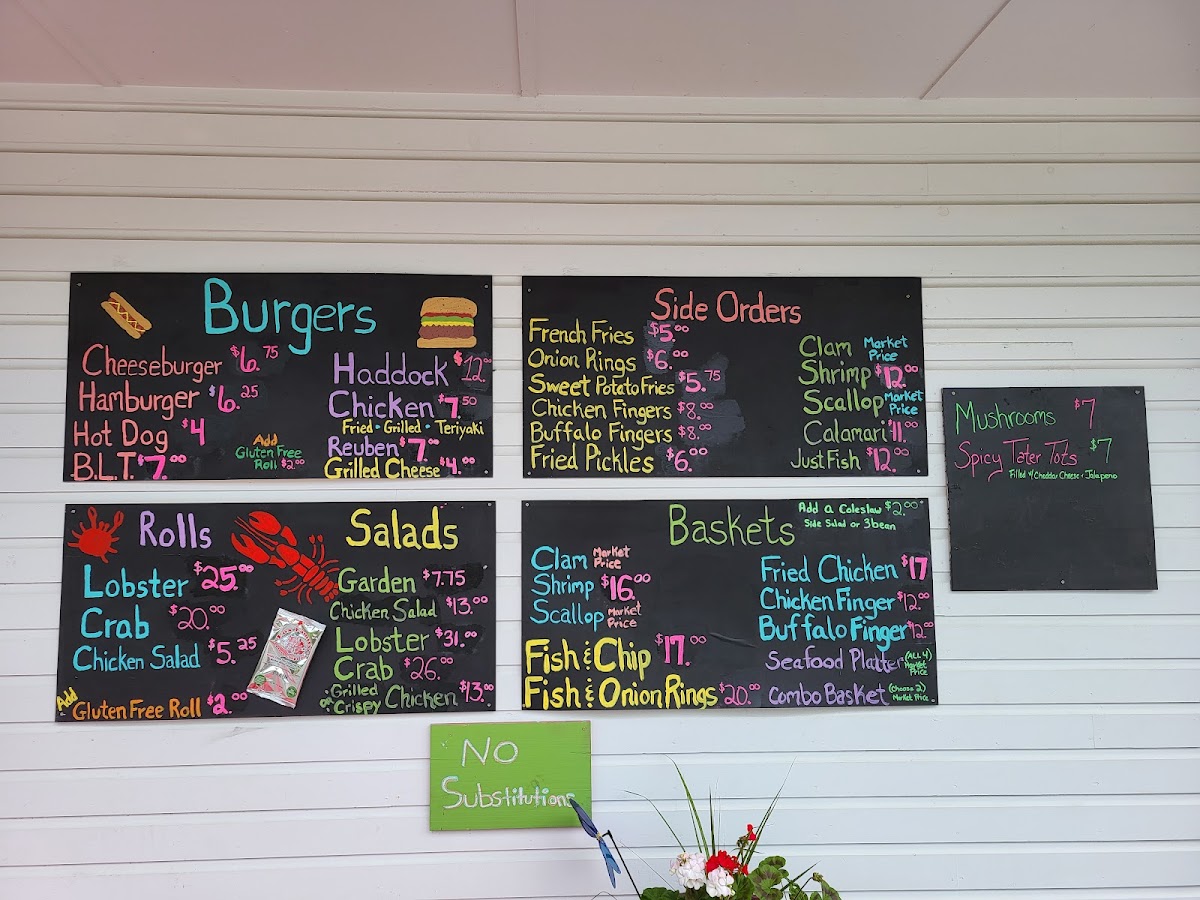 Burgers
Cheeseburger $6.75
Hamburger $6.25
Hot Dog $4
B.L.T. $7.00
Add
Gluten Free
Roll $2.00
Haddock $12.00
Chicken $7.50
Fried • Grilled • Teriyaki
Reuben $7.00
Grilled Cheese $4.00
Side Orders
French Fries $5.00
Onion Rings $6.00
Sweet Potato Fries $5.75
Chicken Fingers $8.00
Buffalo Fingers $8.00
Fried Pickles $6.00
Clam Market Price
Shrimp $12.00
Scallop Market Price
Calamari $11.00
Just Fish $12.00
Mushrooms $7
Spicy Tater Tots $7
Filled w/ Cheddar Cheese + Jalapeno
Rolls
Lobster $25.00
Crab $20.00
Chicken Salad $5.25
Add Gluten Free Roll $2.00
Salads
Garden $7.75
Chicken Salad $13.00
Lobster $31.00
Crab $26.00
Grilled or Crispy Chicken $13.00
Baskets
Add a Coleslaw $2.00
Side Salad or 3bean
Clam Market Price
Shrimp $16.00
Scallop Market Price
Fish & Chip $17.00
Fish & Onion Rings $20.00
Fried Chicken $17
Chicken Finger $12.00
Buffalo Finger $12.00
Seafood Platter (ALL 4) Market Price
Combo Basket (choose 2) Market Price
No
Substitutions